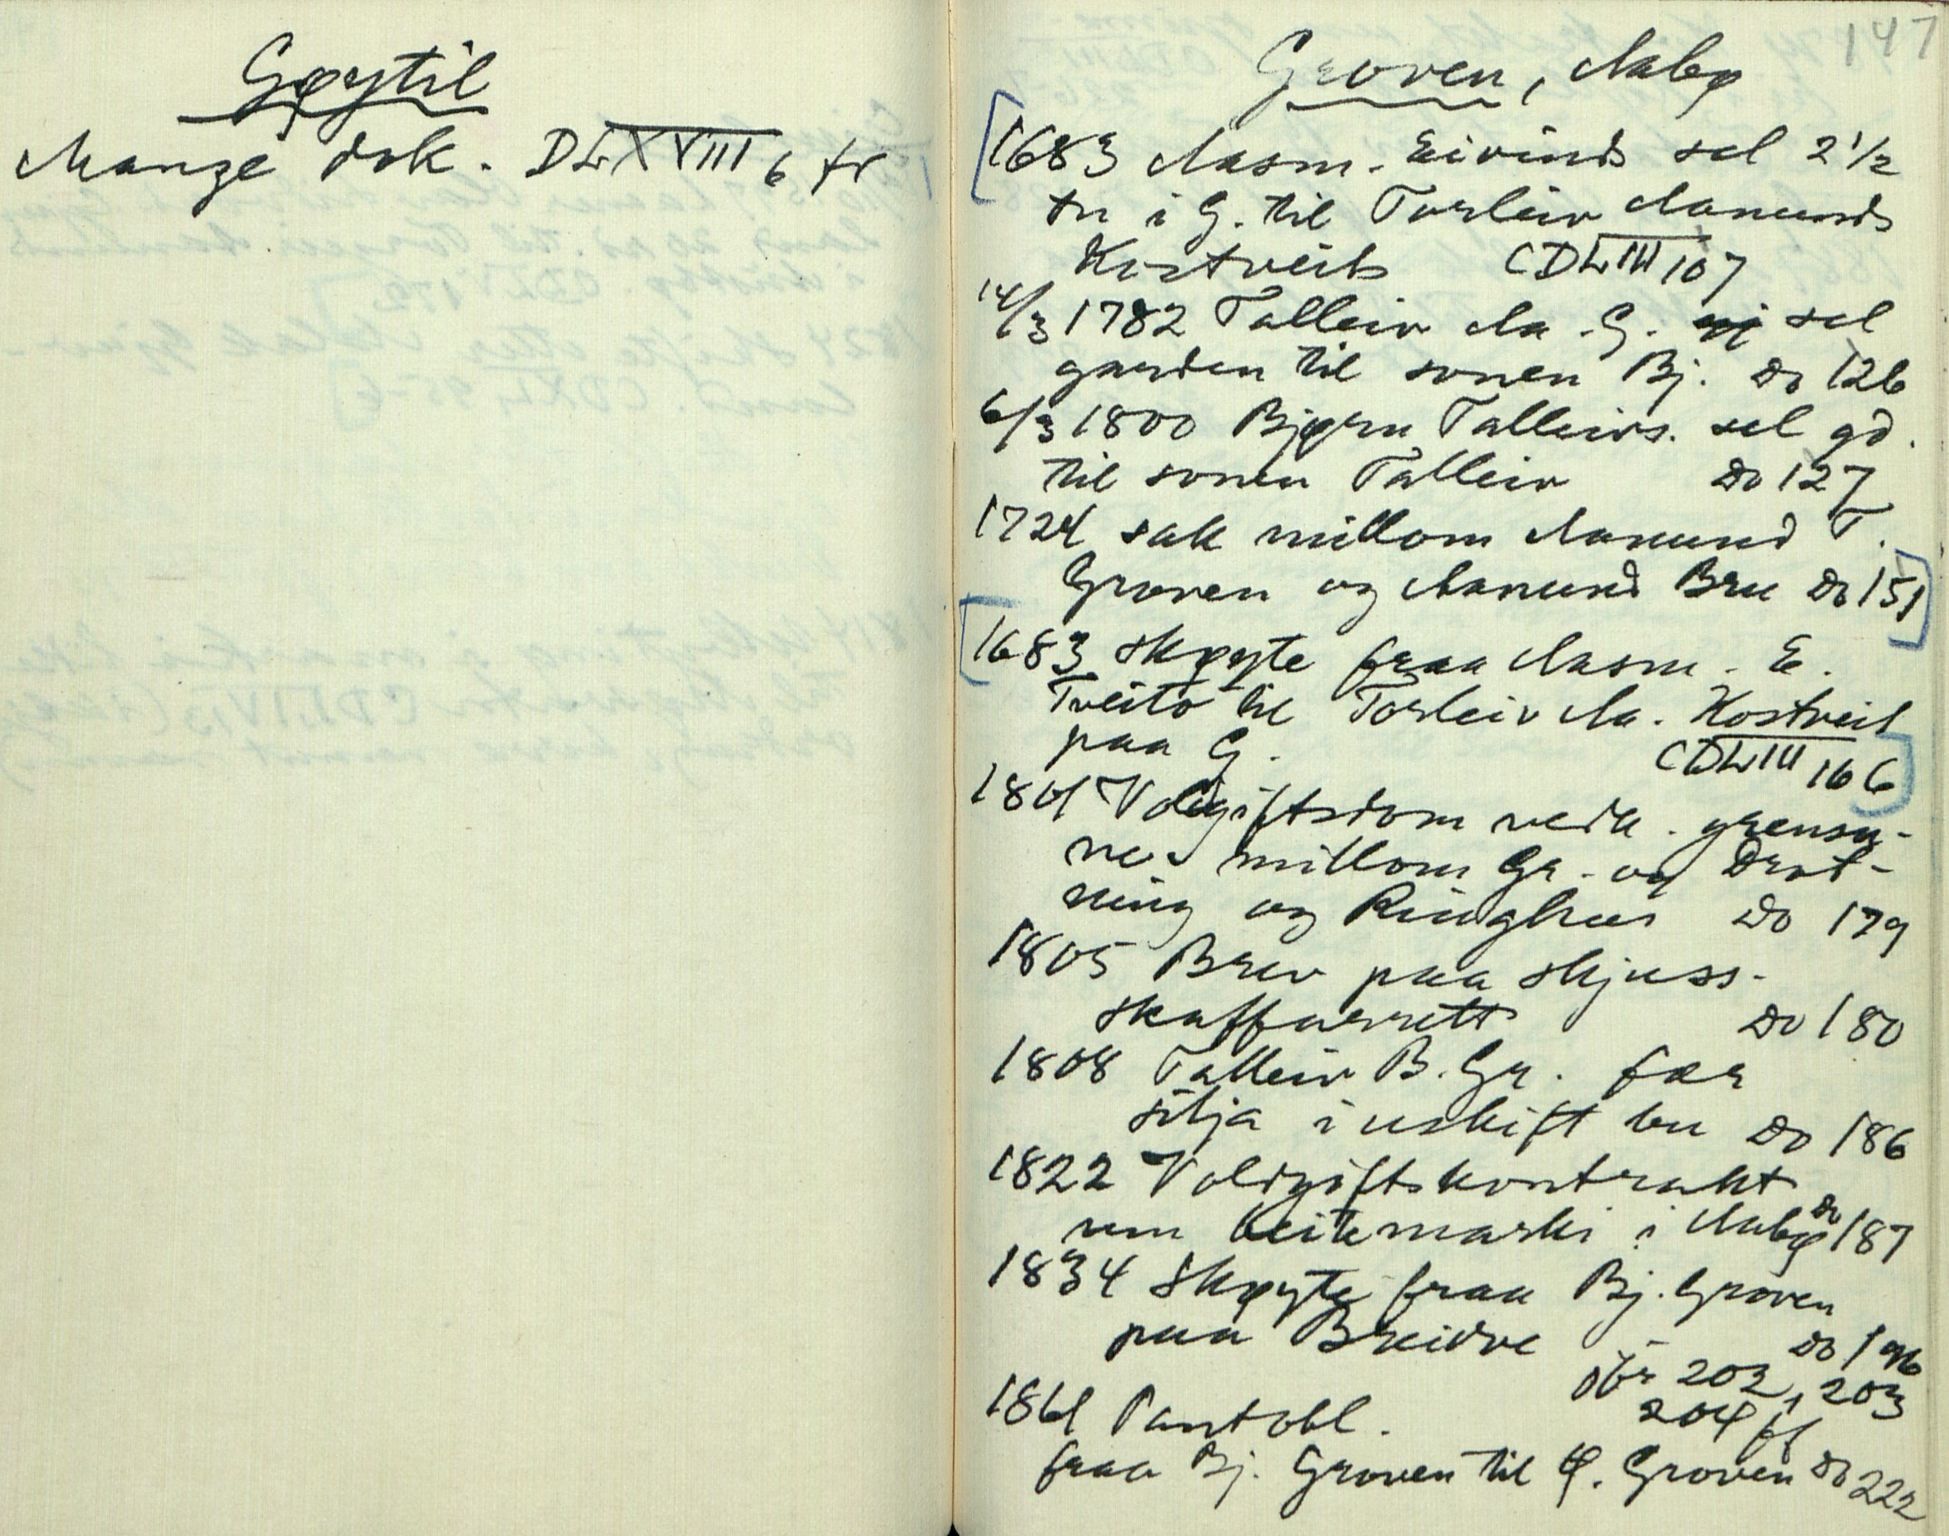 Gøytil
Mange dok. DLXVIII 6 fr
147
Groven, Aabø
1683 Aasm. Eivinds sel 2 1/2
tn i G. til Torleiv Aamunds
Kostveit CDLIII 107
14/3 1782 Talleiv Aa. G. sel
garden til sonen Bj. Do 126
6/3 1800 Bjørn Talleivs. sel gd.
til sonen Talleiv Do 127
1724 sak millom Aamund T.
Groven og Aamund Bru Do 151
1683 Skøyte fraa Aasm. E.
Tveito til Torleiv Aa. Kostveit
paa G. CDLIII 166
1801 Voldgiftsdom vedk. grensu-
ne millom Gr. og Drot-
ning og Ringhus Do 179
1805 Brev paa skjuss-
skaffarrett Do 180
1808 Talleiv B. Gr. fær
sitja i uskift bu Do 186
1822 Voldgiftskontrakt
um beitemarki i Aabø Do 187
1834 Skøyte fraa Bj. Groven
paa Breidve Do 196
202, 203
204 ff
1861 Pantobl.
fraa Bj. Groven til Ø. Groven Do 222